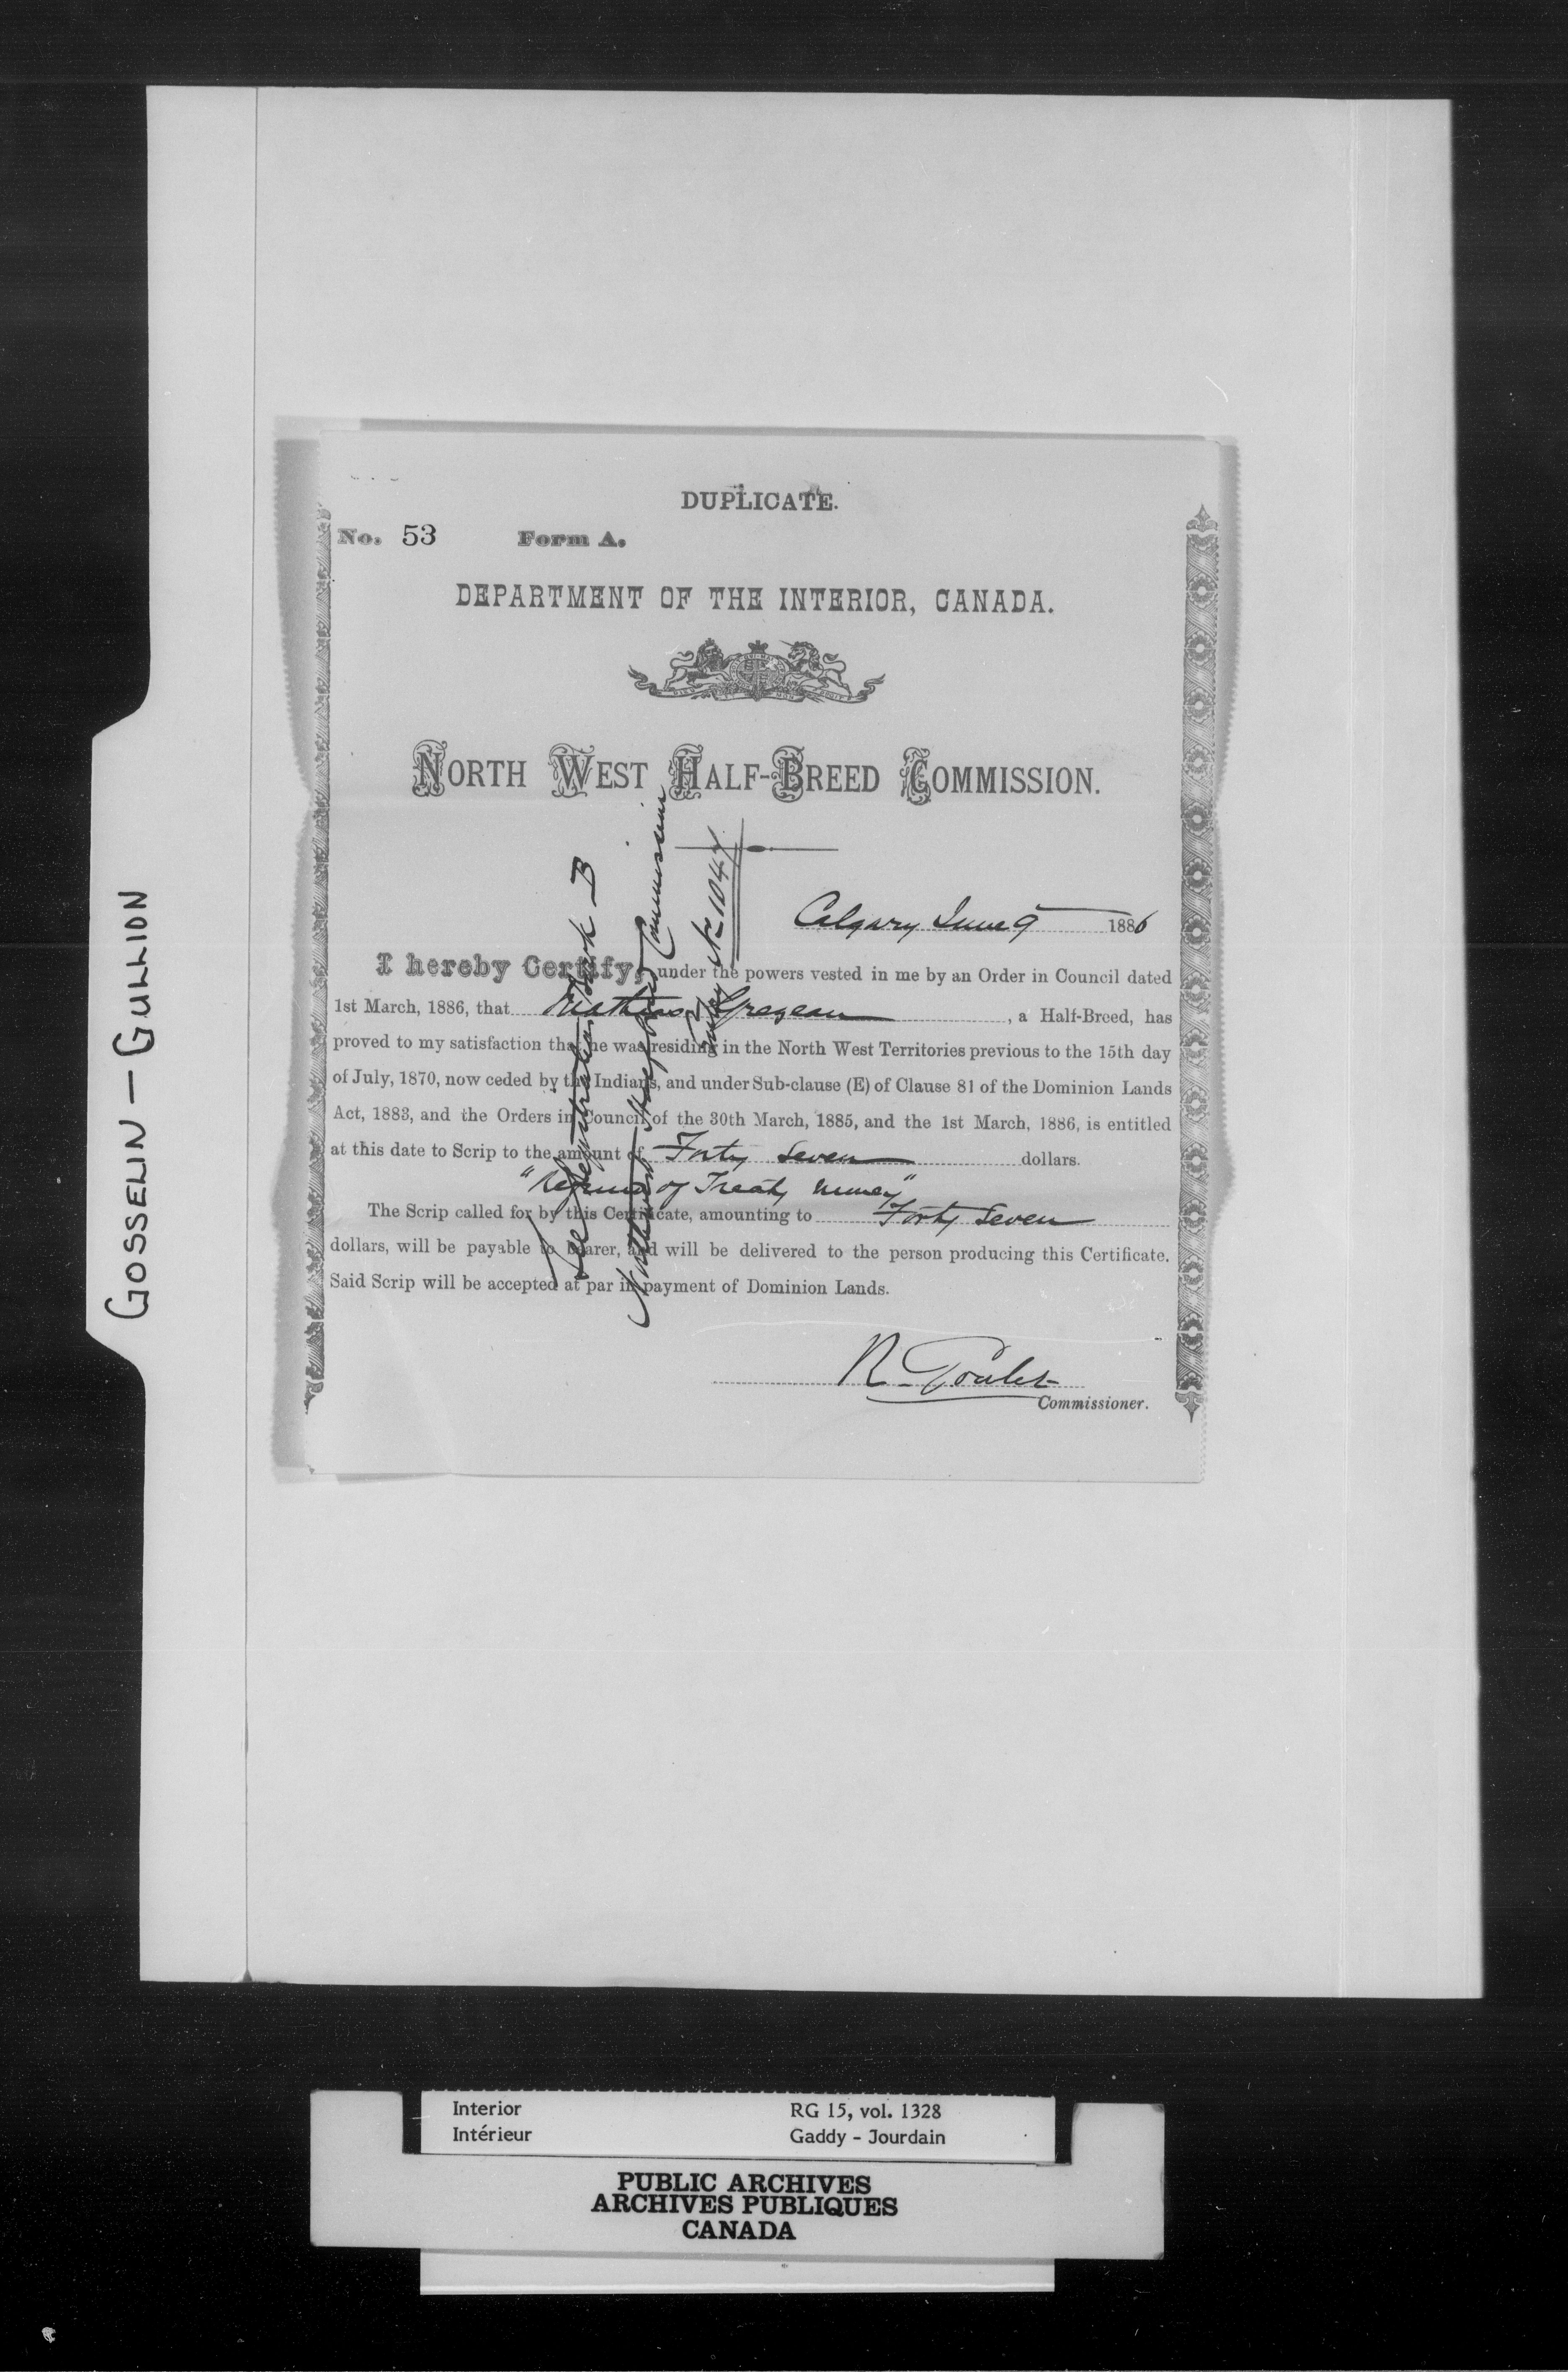 GOSSELIN — GULLION
DUPLICATE.
No. 53 Form A.
DEPARTMENT OF THE INTERIOR, CANADA.
NORTH WEST HALF-BREED COMMISSION.
Calgary June 9 1886
I hereby Certify, under the powers vested in me by an Order in Council dated
1st March, 1886, that , a Half-Breed, has
proved to my satisfaction that he was residing in the North West Territories previous to the 15th day
of July, 1870, now ceded by the Indians, and under Sub-clause (E) of Clause 81 of the Dominion Lands
Act, 1883, and the Orders in Council of the 30th March, 1885, and the 1st March, 1886, is entitled
at this date to Scrip to the amount of Forty Seven dollars.
"Refund of Treaty money"
The Scrip called for by this Certificate, amounting to Forty Seven
dollars, will be payable to bearer, and will be delivered to the person producing this Certificate.
Said Scrip will be accepted at par in payment of Dominion Lands.
R. Goulet
Commissioner.
See Register Book B
North West Commission
No 1047
Interior RG 15, vol. 1328
Intérieur Gaddy - Jourdain
PUBLIC ARCHIVES
ARCHIVES PUBLIQUES
CANADA